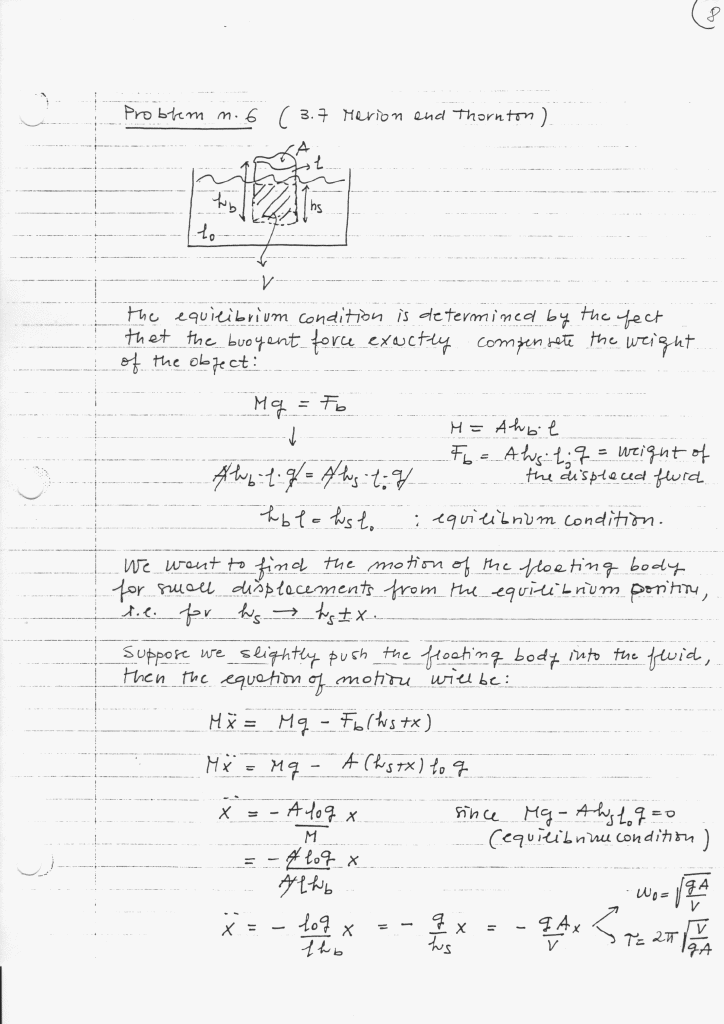 8
Problem n. 6 ( 3.7 Marion and Thornton )
A
ρ
h_b
h_s
ρ₀
V
the equilibrium condition is determined by the fact
that the buoyant force exactly compensate the weight
of the object:
Mg = F_b
↓
M = Ah_b·ρ
F_b = Ah_s·ρ₀·g = weight of
the displaced fluid
Ah_b·ρ·g = Ah_s·ρ₀·g
h_bρ = h_sρ₀ : equilibrium condition.
We want to find the motion of the floating body
for small displacements from the equilibrium position,
i.e. for h_s → h_s ± x.
Suppose we slightly push the floating body into the fluid,
then the equation of motion will be:
Mẍ = Mg - F_b(h_s+x)
Mẍ = Mg - A(h_s+x)ρ₀g
ẍ = - Aρ₀g/M x since Mg - Ah_sρ₀g = 0
(equilibrium condition)
= - Aρ₀g/Aρh_b x
ẍ = - ρ₀g/ρh_b x = - g/h_s x = - gA/V x
ω₀ = √(gA/V)
τ = 2π√(V/gA)